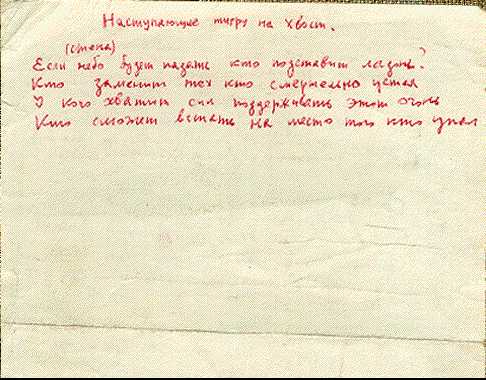 Наступающие тигру на хвост.
(стена)
Если небо будет падать кто подставит ладонь?
Кто заменит тех кто смертельно устал
У кого хватит сил поддерживать этот огонь
Кто сможет встать на место того кто упал